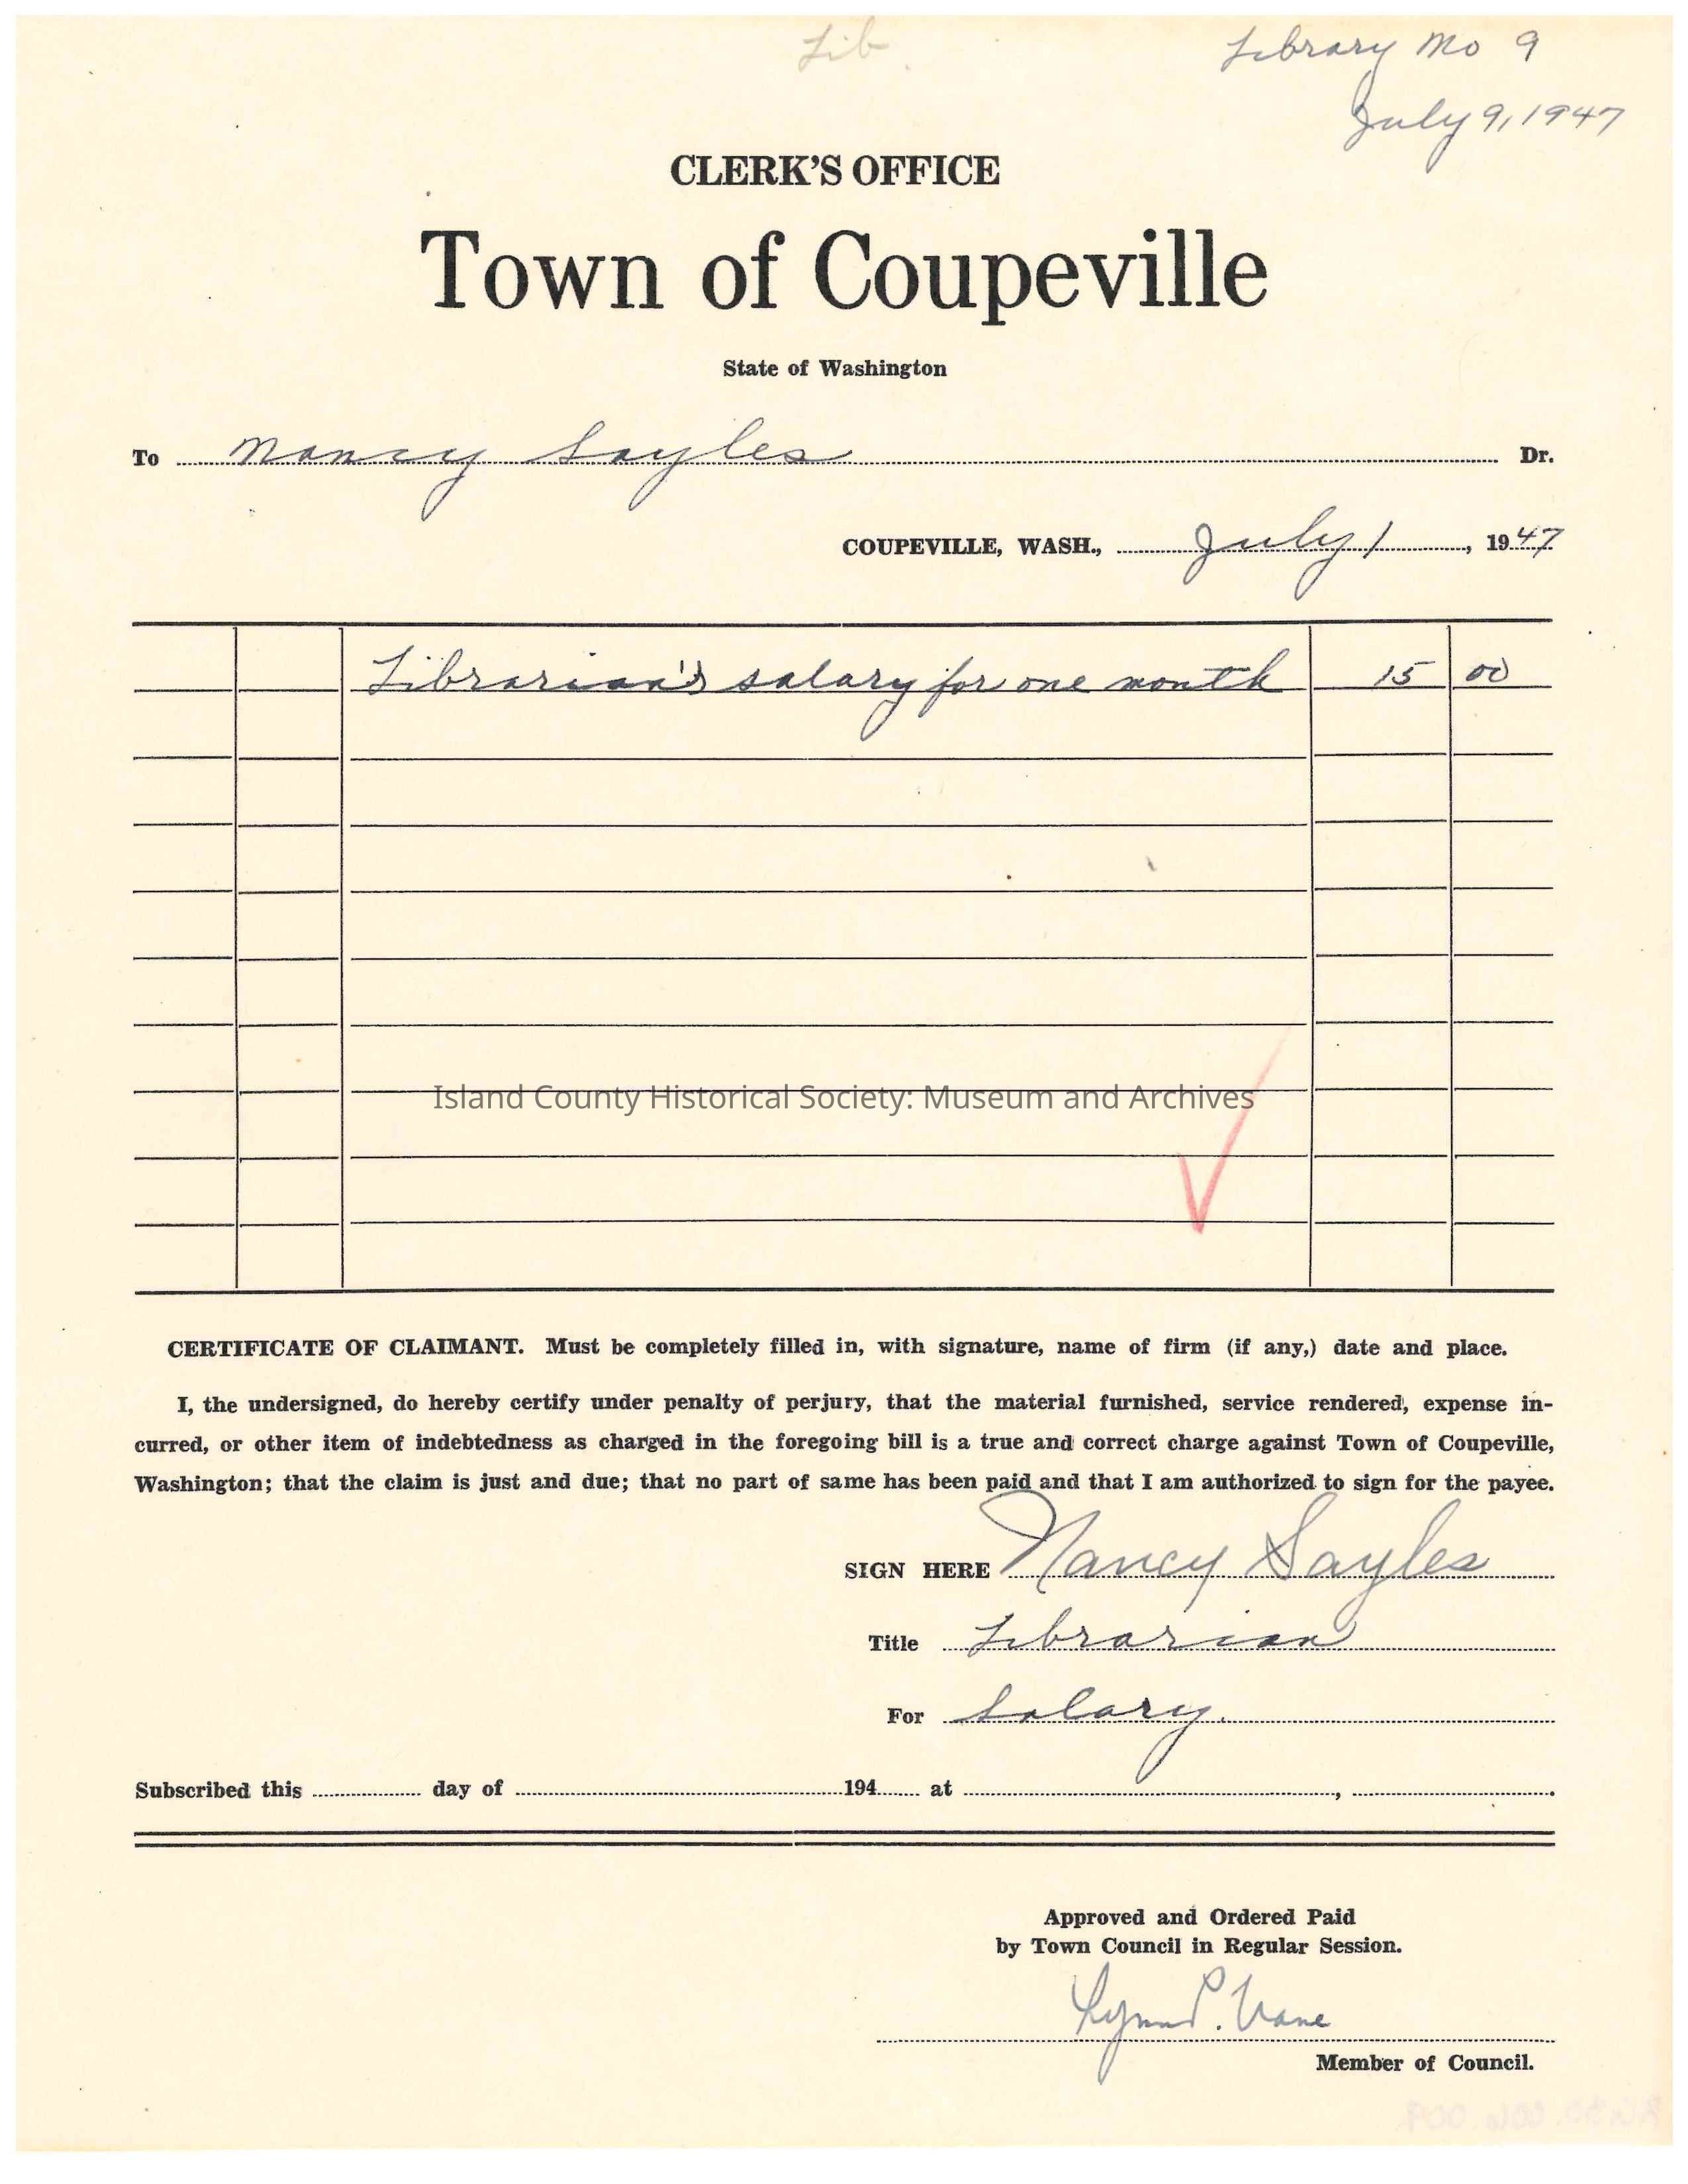 Lib.
Library No 9
July 9, 1947
CLERK'S OFFICE
Town of Coupeville
State of Washington
To Nancy Sayles Dr.
COUPEVILLE, WASH., July 1, 1947
Librarian's salary for one month 15 00
Island County Historical Society: Museum and Archives
CERTIFICATE OF CLAIMANT. Must be completely filled in, with signature, name of firm (if any,) date and place.
I, the undersigned, do hereby certify under penalty of perjury, that the material furnished, service rendered, expense in-
curred, or other item of indebtedness as charged in the foregoing bill is a true and correct charge against Town of Coupeville,
Washington; that the claim is just and due; that no part of same has been paid and that I am authorized to sign for the payee.
SIGN HERE Nancy Sayles
Title Librarian
For Salary.
Subscribed this day of 194 at , .
Approved and Ordered Paid
by Town Council in Regular Session.
Lynn P. Vane
Member of Council.